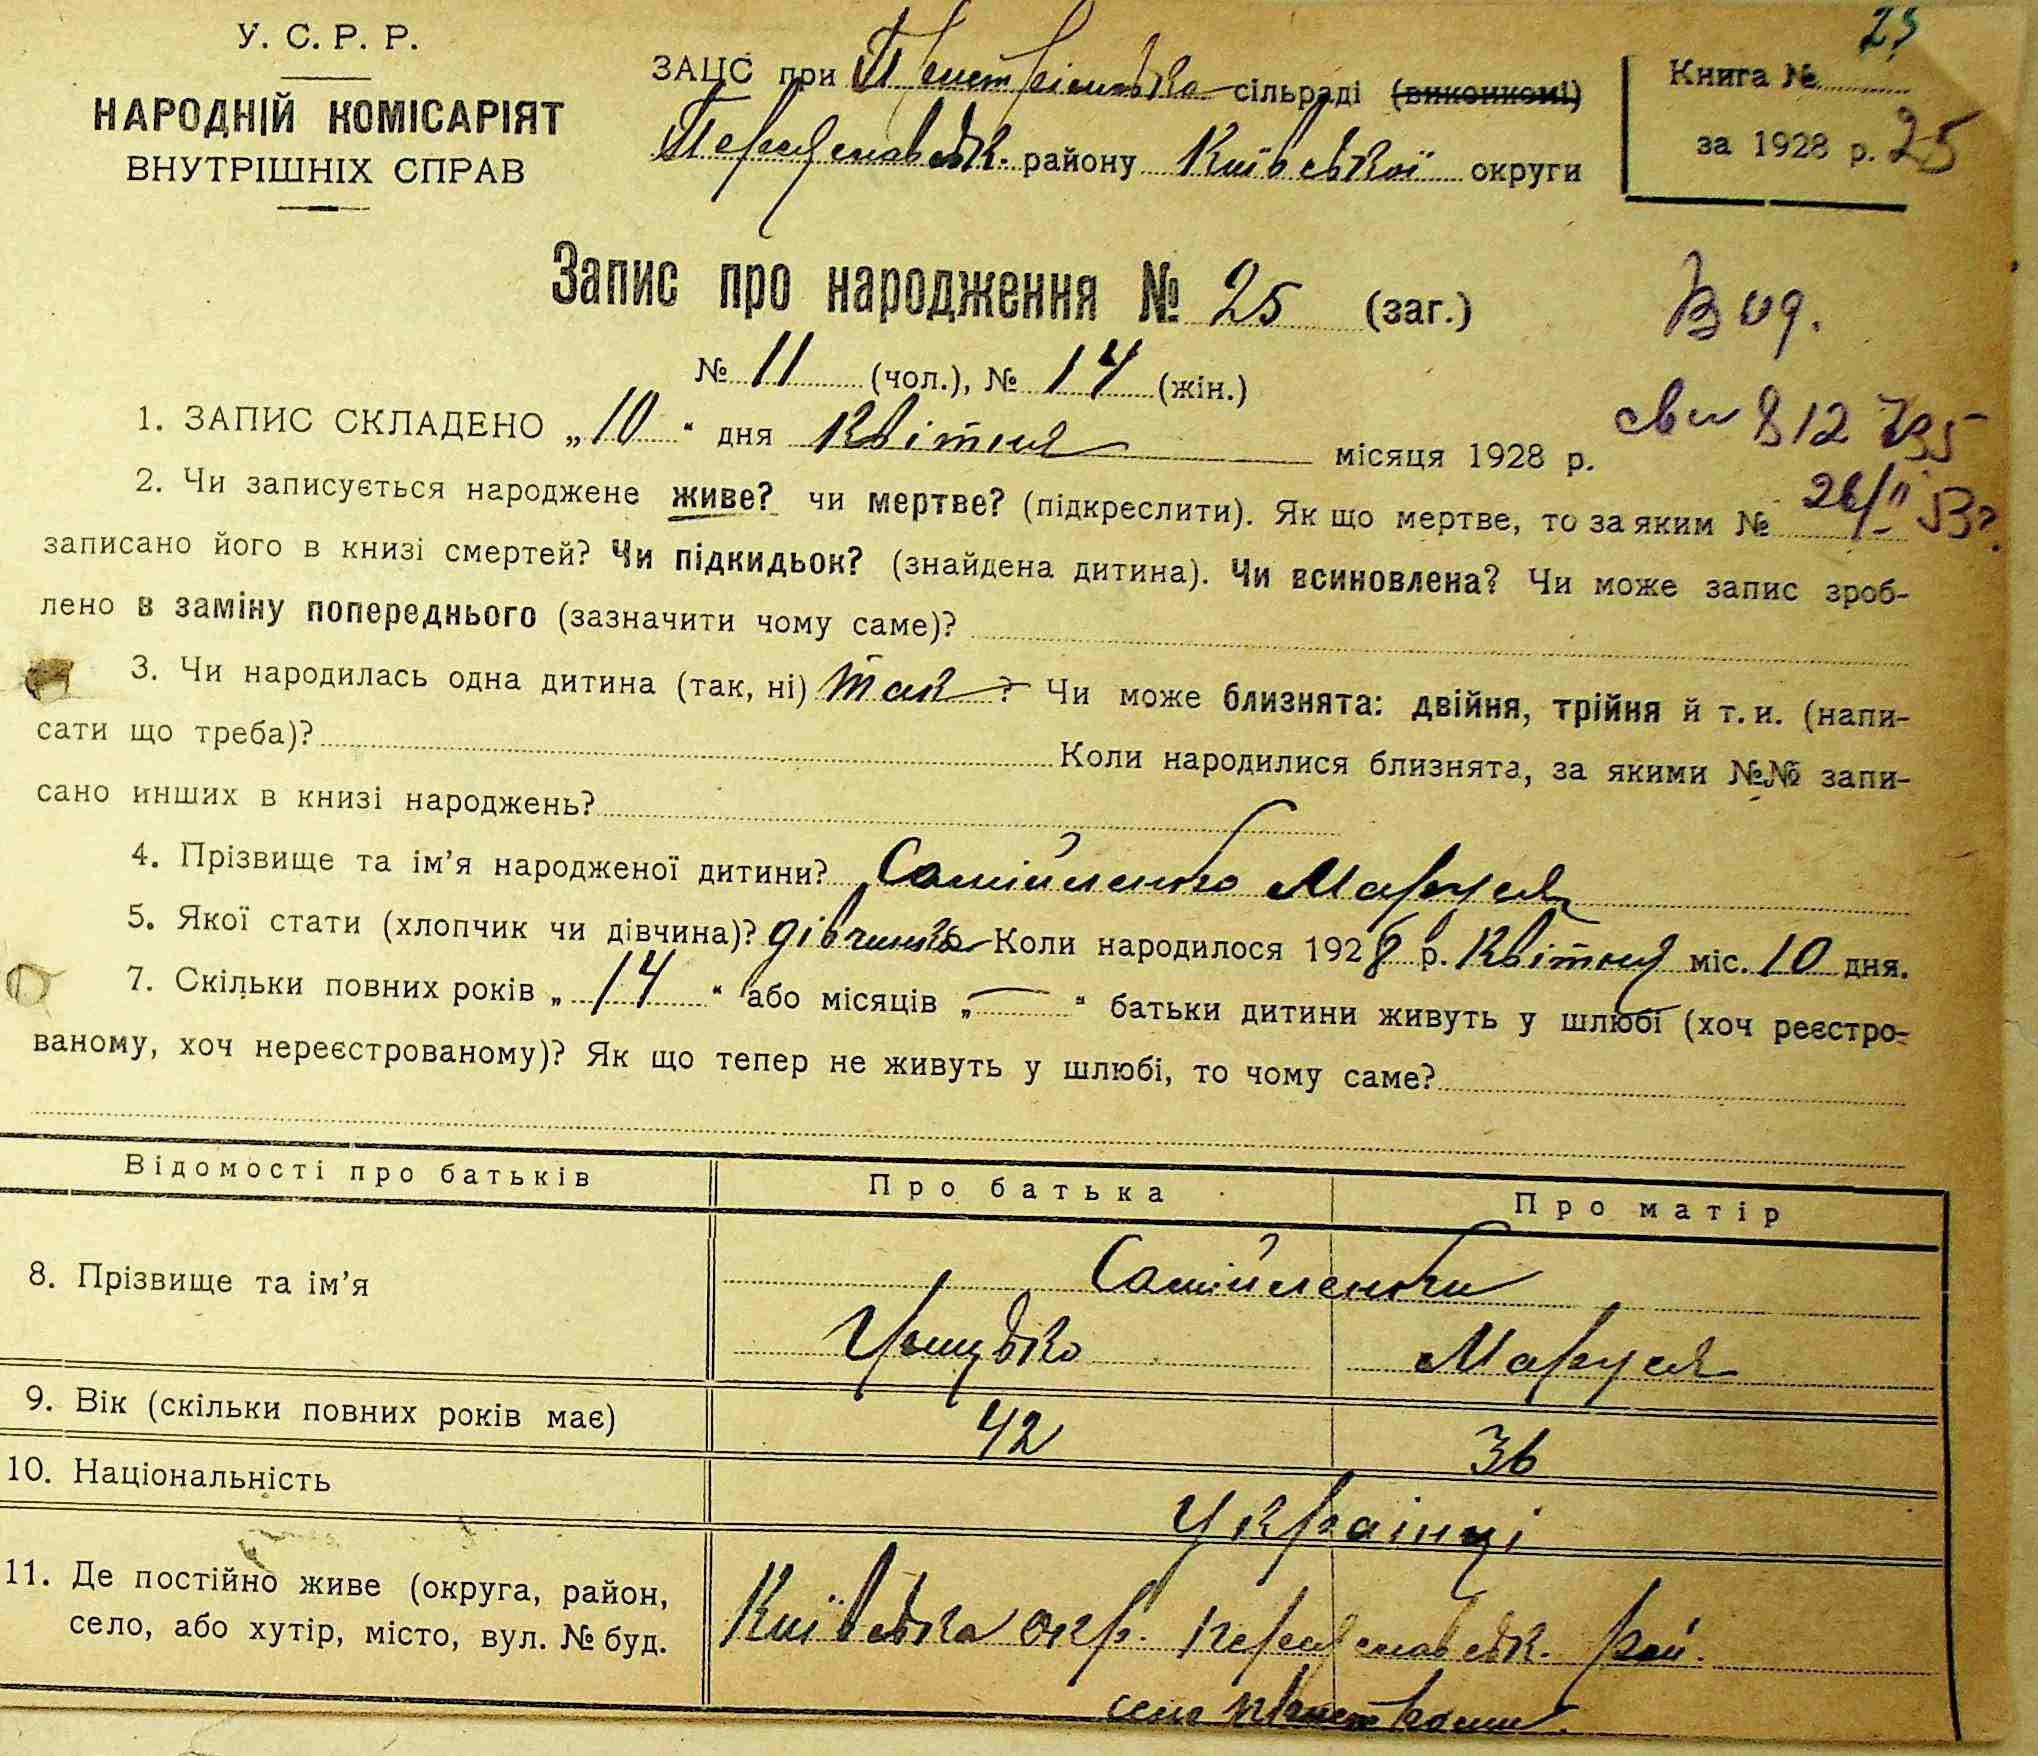 У. С. Р. Р.
НАРОДНІЙ КОМІСАРІЯТ
ВНУТРІШНІХ СПРАВ
23
ЗАЦС при сільраді (виконкомі)
Переяславськ. району Київської округи
Книга №
за 1928 р. 25
Запис про народження № 25 (заг.)
№ 11 (чол.), № 14 (жін.)
Вид.
св 812735
26/II 53
1. ЗАПИС СКЛАДЕНО „10“ дня Квітня місяця 1928 р.
2. Чи записується народжене живе? чи мертве? (підкреслити). Як що мертве, то за яким №
записано його в книзі смертей? Чи підкидьок? (знайдена дитина). Чи всиновлена? Чи може запис зроб-
лено в заміну попереднього (зазначити чому саме)?
3. Чи народилась одна дитина (так, ні) так? Чи може близнята: двійня, трійня й т. и. (напи-
сати що треба)? Коли народилися близнята, за якими №№ запи-
сано инших в книзі народжень?
4. Прізвище та ім’я народженої дитини? Самійленко Маруся
5. Якої стати (хлопчик чи дівчина)? дівчинка Коли народилося 1928 р. Квітня міс. 10 дня.
7. Скільки повних років „14“ або місяців „—“ батьки дитини живуть у шлюбі (хоч реєстро-
ваному, хоч нереєстрованому)? Як що тепер не живуть у шлюбі, то чому саме?
Відомості про батьків Про батька Про матір
8. Прізвище та ім’я Самійленки
Грицько Маруся
9. Вік (скільки повних років має) 42 36
10. Національність Українці
11. Де постійно живе (округа, район,
село, або хутір, місто, вул. № буд.
Київська окр. Переяславськ. рай.
село